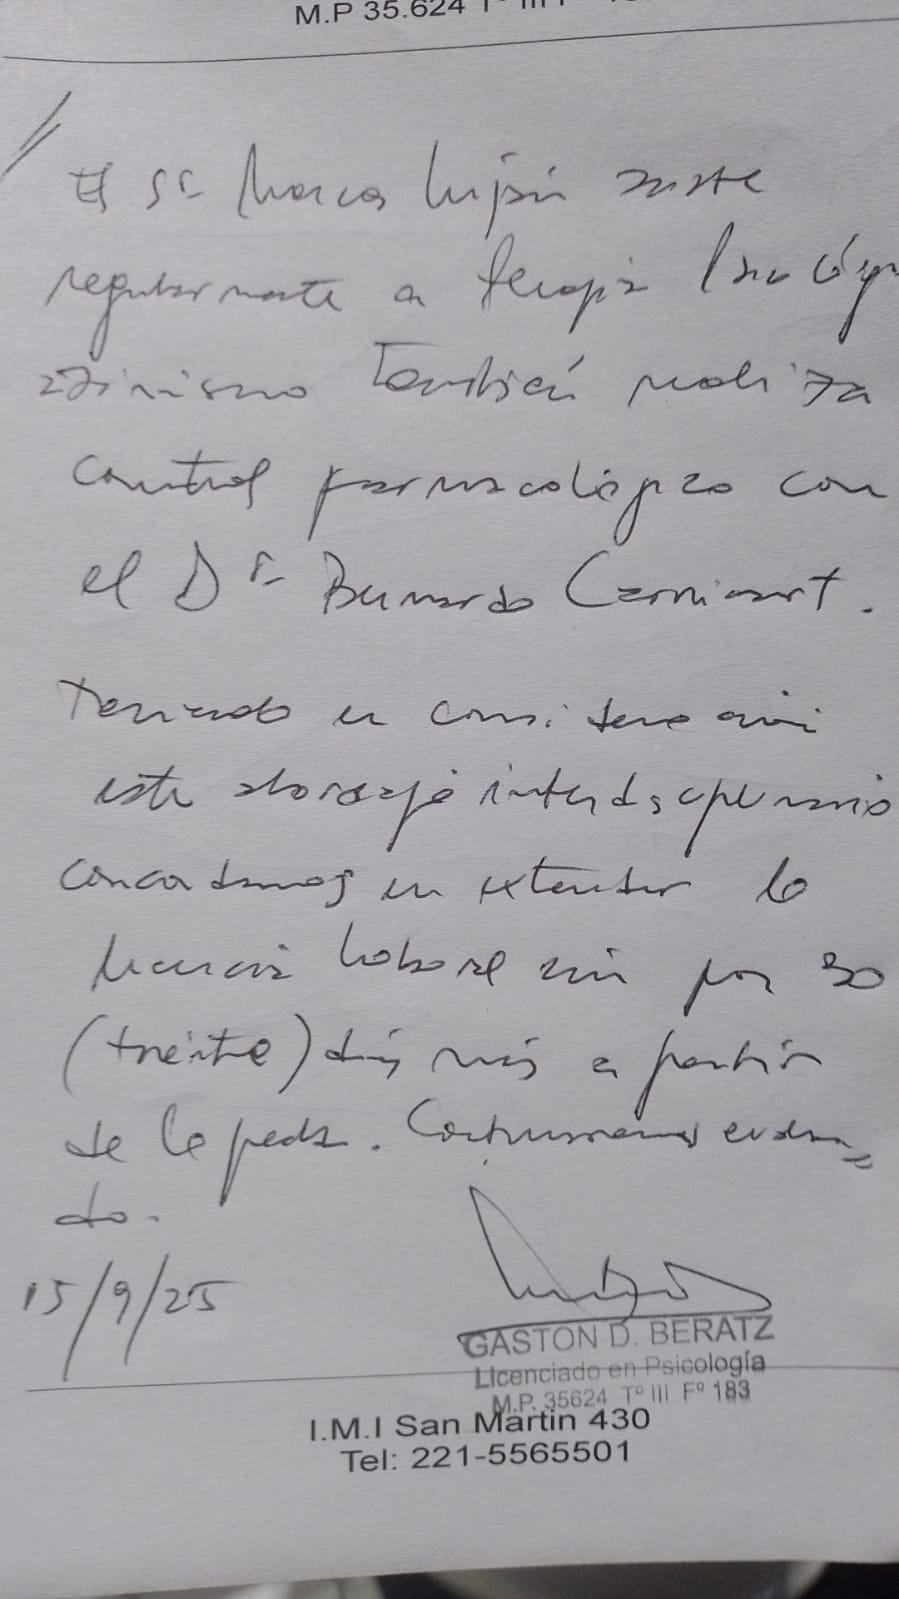 M.P 35.624 Tº III F
El Sr Marcos Luján asiste
regularmente a terapia
asimismo también realiza
control farmacológico con
el Dr Bernardo
Teniendo en consideración
este abordaje interdisciplinario
concordamos en extender la
licencia laboral por 30
(treinta) días más a partir
de la fecha. Continuamos evaluan=
do.
15/9/25
GASTON D. BERATZ
Licenciado en Psicología
M.P. 35624 Tº III Fº 183
I.M.I San Martin 430
Tel: 221-5565501